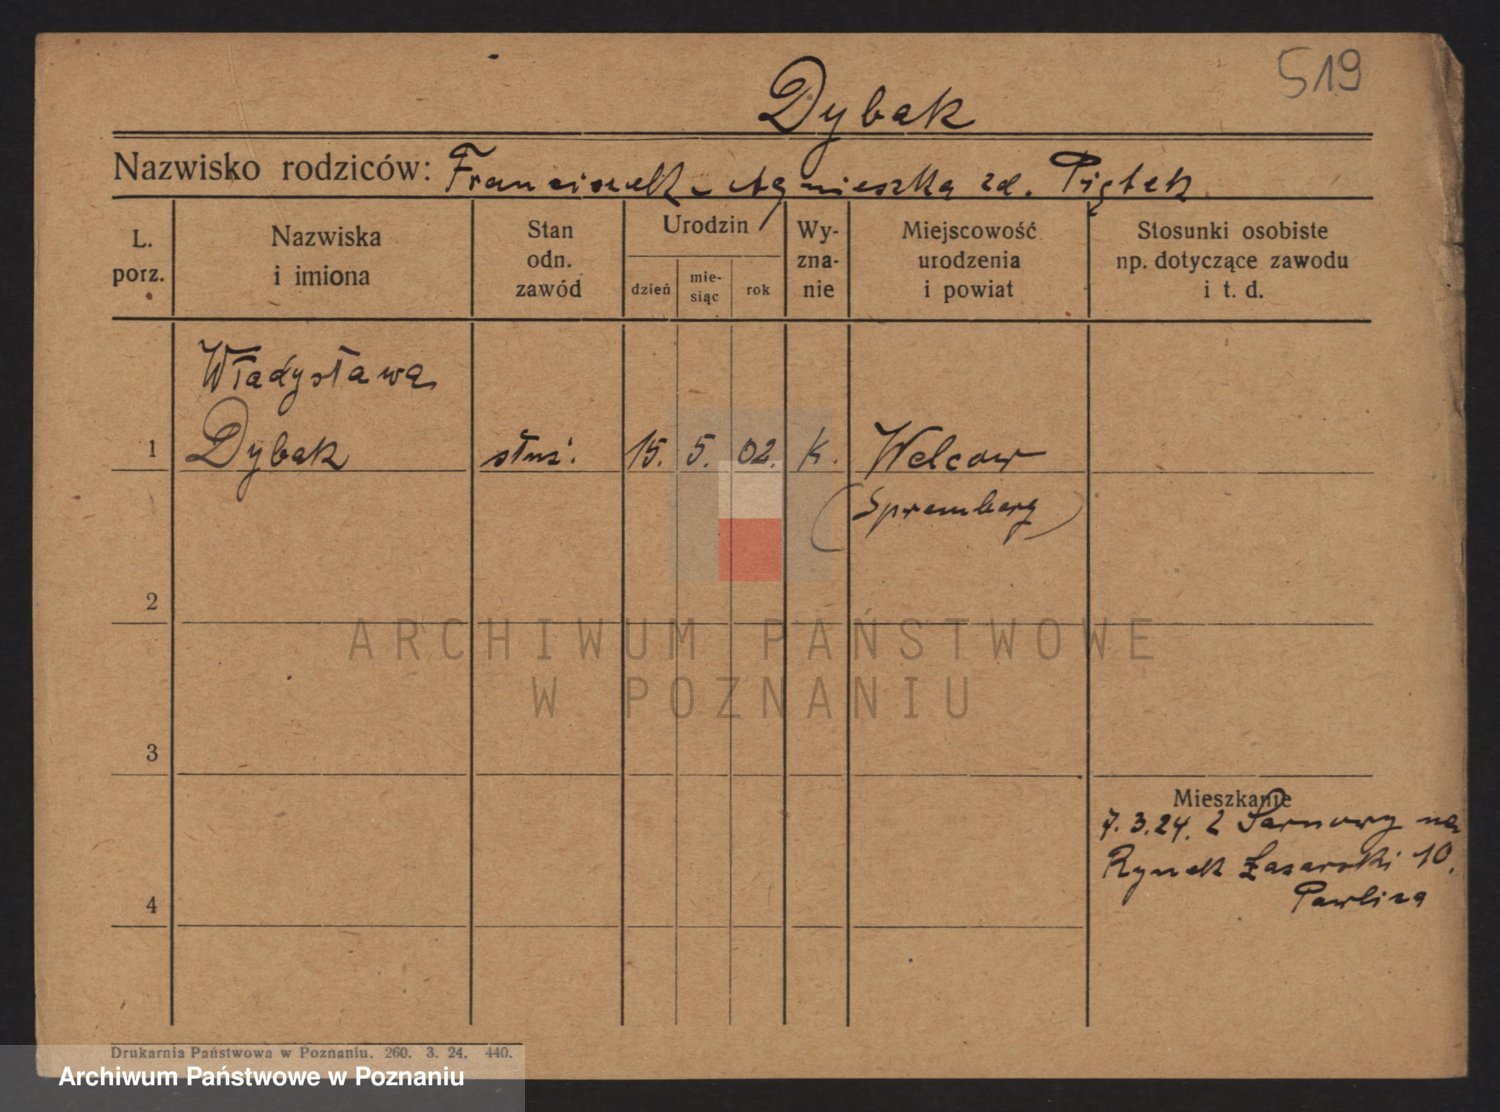 519
Dybak
Nazwisko rodziców: Franciszek - Agnieszka zd. Piątek
L. porz.
Nazwiska i imiona
Stan odn. zawód
Urodzin
dzień
mie-siąc
rok
Wy-zna-nie
Miejscowość urodzenia i powiat
Stosunki osobiste np. dotyczące zawodu i t. d.
Władysława
1 Dybak służ. 15. 5. 02. k. Welcow
(Spremberg)
2
ARCHIWUM PAŃSTWOWE
W POZNANIU
3
Mieszkanie
7.3.24. z Sarnowy na
Rynek Łazarski 10.
4
Drukarnia Państwowa w Poznaniu. 260. 3. 24. 440.
Archiwum Państwowe w Poznaniu